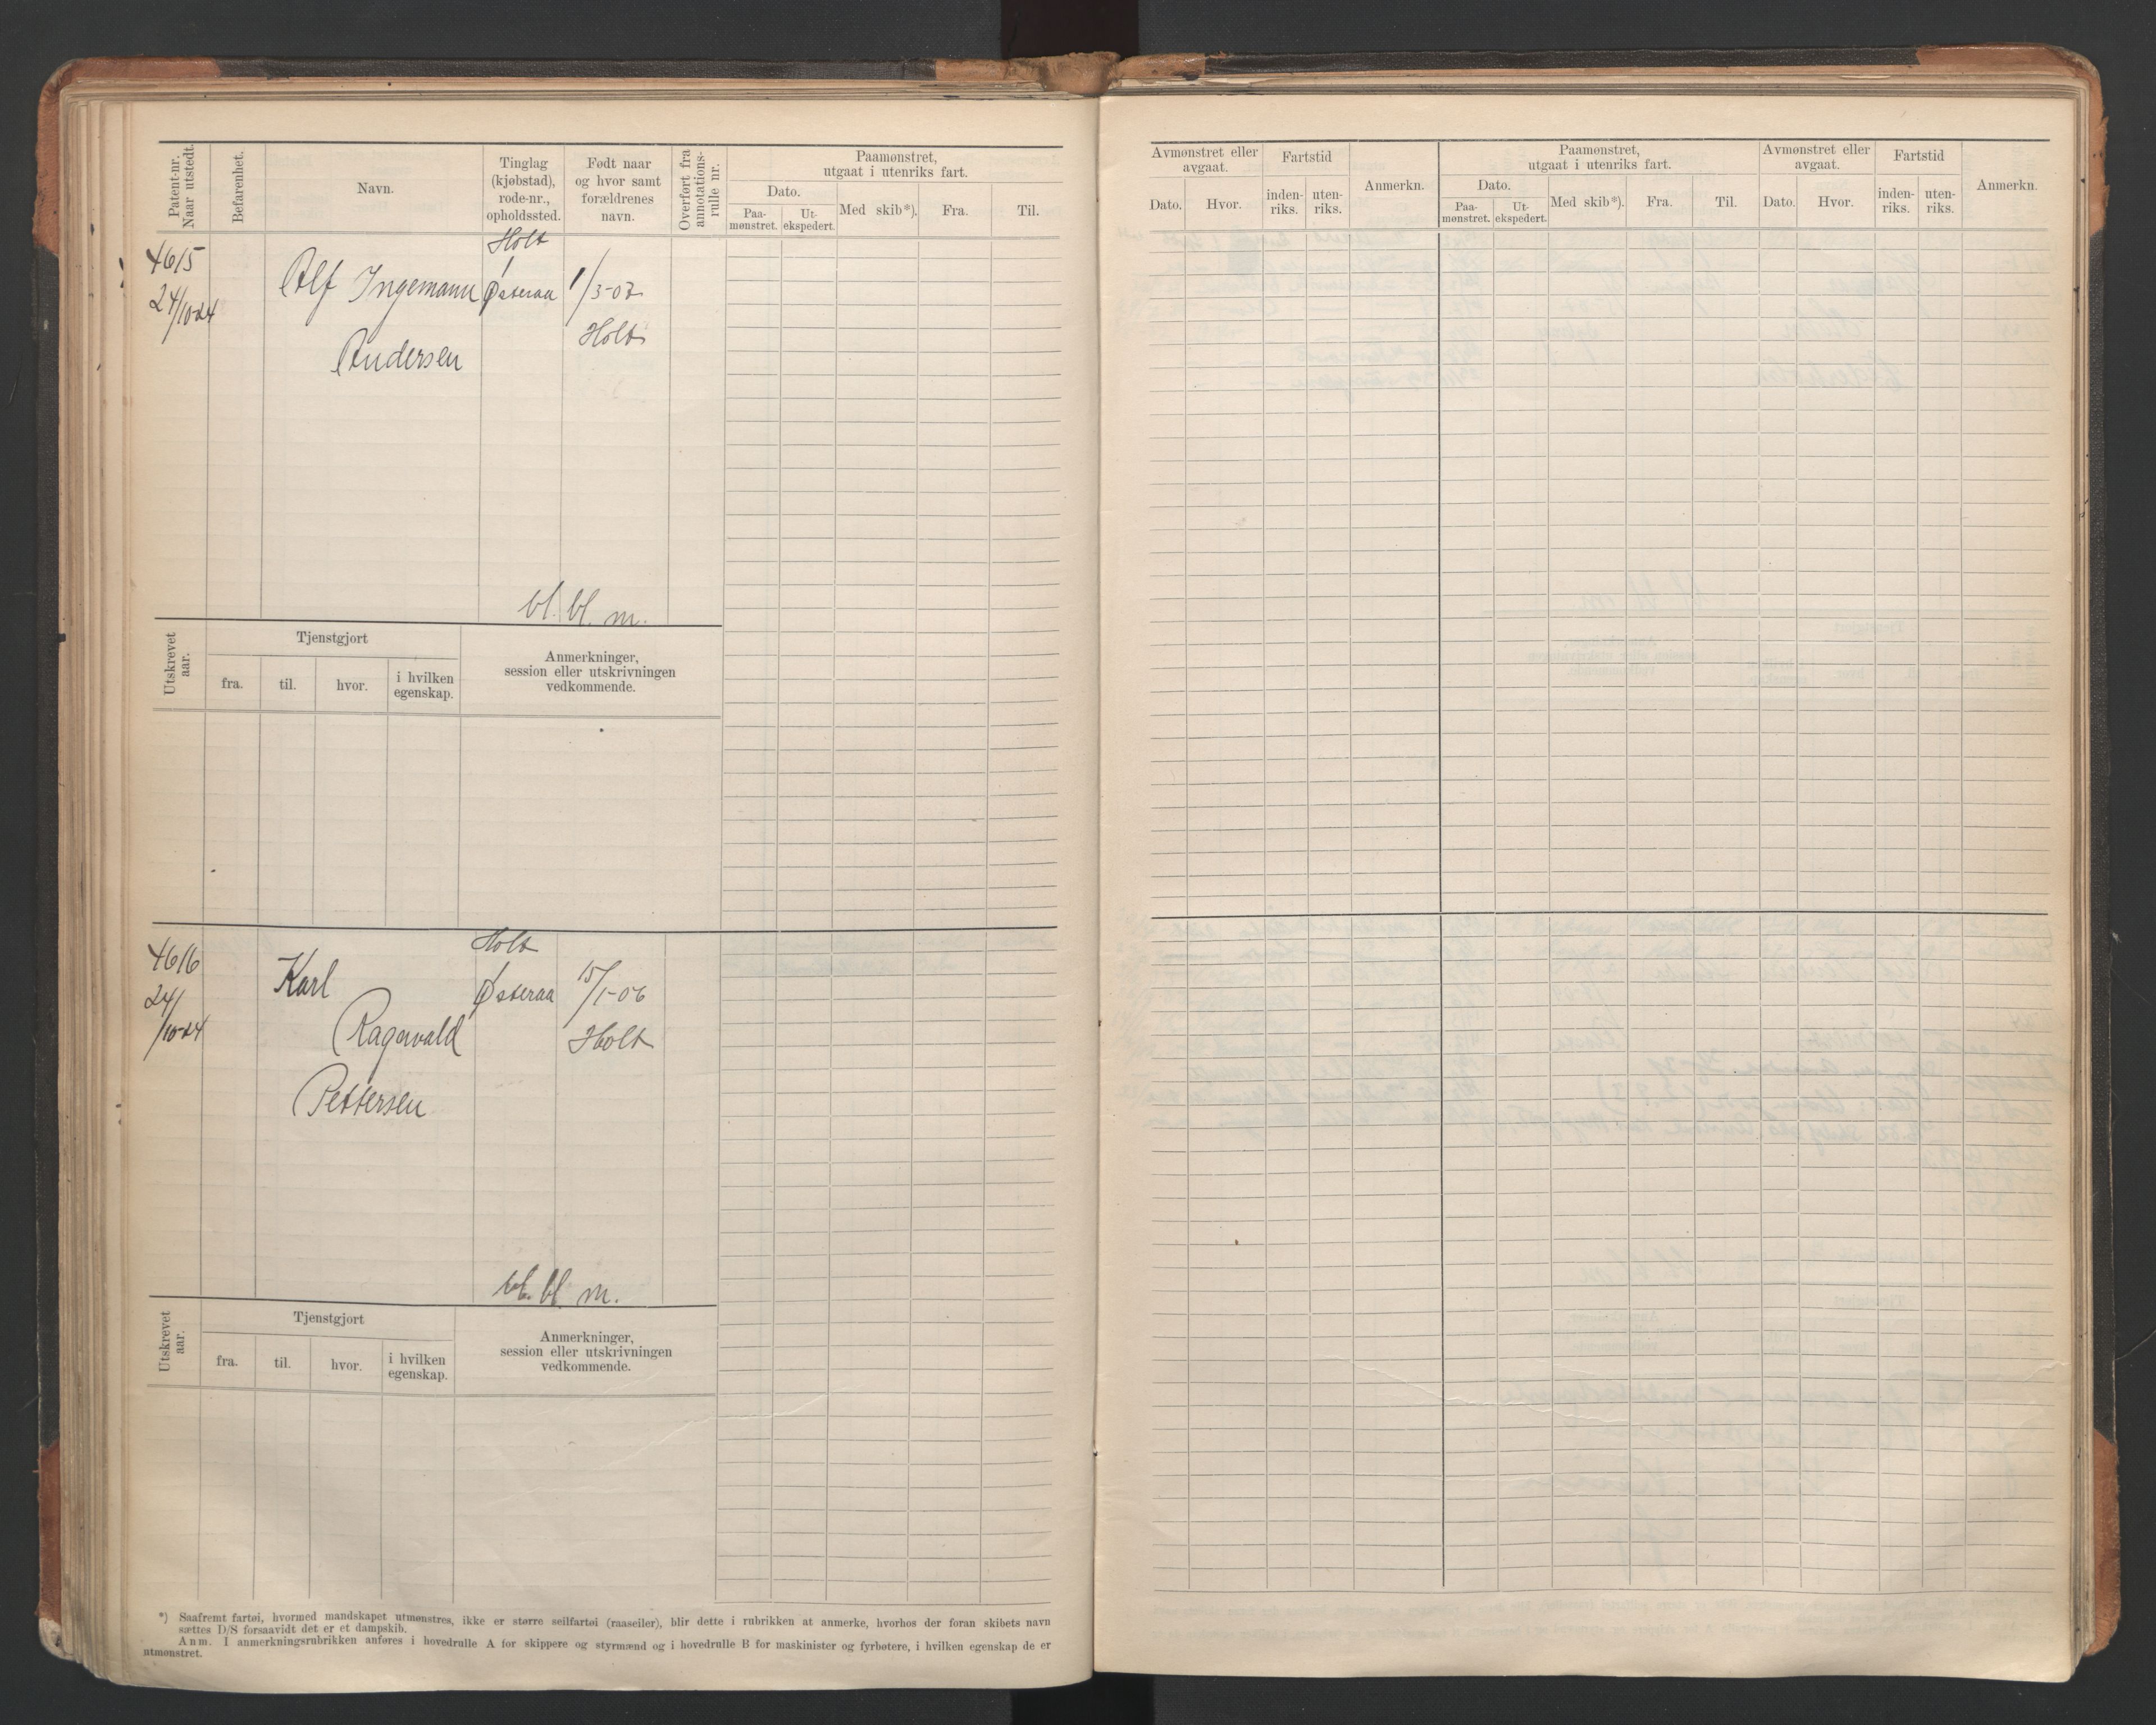 Patent-nr. Naar utstedt.
Befarenhet.
Navn.
Tinglag (kjøbstad), rode-nr., opholdssted.
Født naar og hvor samt forældrenes navn.
Overført fra annotations-rulle nr.
Paamønstret, utgaat i utenriks fart.
Dato.
Paa-mønstret.
Ut-ekspedert.
Med skib*).
Fra.
Til.
4615
24/10-24
Alf Ingemann
Andersen
Holt
Østeraa
1/3-03
Holt
bl. bl. m.
Utskrevet aar.
Tjenstgjort
fra.
til.
hvor.
i hvilken egenskap.
Anmerkninger,
session eller utskrivningen
vedkommende.
4616
24/10-24
Karl
Ragnvald
Pettersen
Holt
Østeraa
15/1-06
Holt
bl. bl. m.
Utskrevet aar.
Tjenstgjort
fra.
til.
hvor.
i hvilken egenskap.
Anmerkninger,
session eller utskrivningen
vedkommende.
*) Saafremt fartøi, hvormed mandskapet utmønstres, ikke er større seilfartøi (raaseiler), blir dette i rubrikken at anmerke, hvorhos der foran skibets navn
sættes D/S forsaavidt det er et dampskib.
Anm. I anmerkningsrubrikken anføres i hovedrulle A for skippere og styrmænd og i hovedrulle B for maskinister og fyrbøtere, i hvilken egenskap de er
utmønstret.
Avmønstret eller avgaat.
Dato.
Hvor.
Fartstid
inden-riks.
uten-riks.
Anmerkn.
Paamønstret,
utgaat i utenriks fart.
Dato.
Paa-mønstret.
Ut-ekspedert.
Med skib*).
Fra.
Til.
Avmønstret eller avgaat.
Dato.
Hvor.
Fartstid
inden-riks.
uten-riks.
Anmerkn.